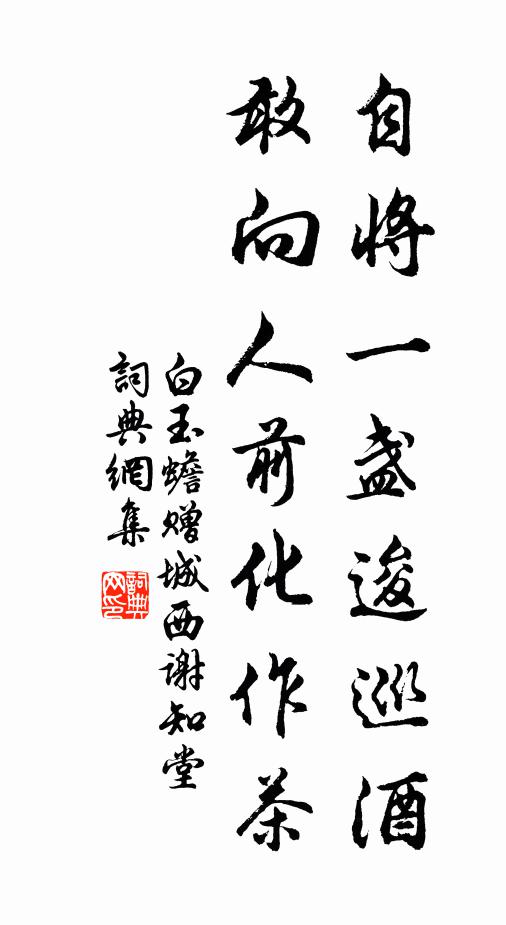 自將一盏逡巡酒
敢向人前化作茶
白玉蟾赠城西谢知堂
詞典網集
詞典网印